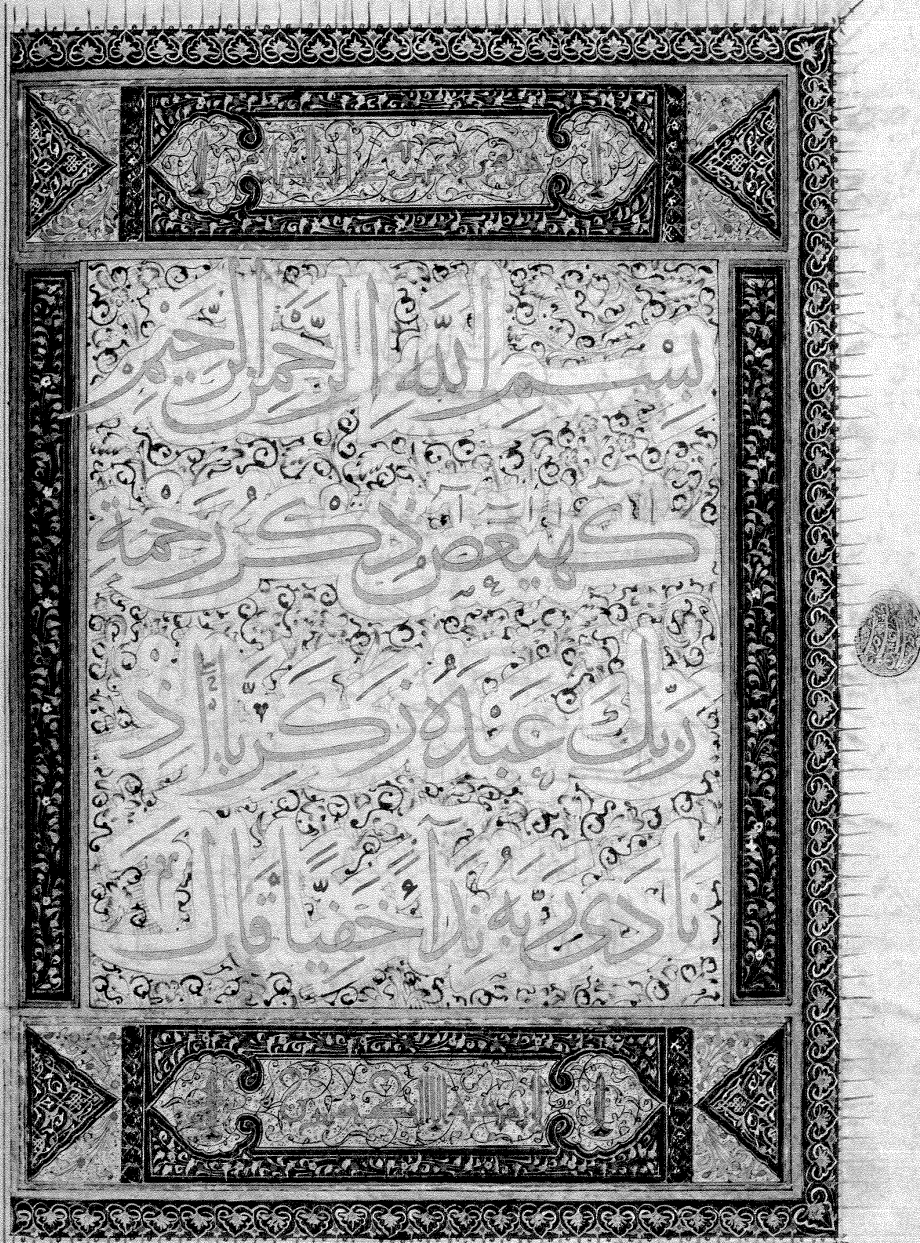 بِسْمِ اللَّهِ الرَّحْمٰنِ الرَّحِيمِ
كهيعص ذِكْرُ رَحْمَةِ
رَبِّكَ عَبْدَهُ زَكَرِيَّا إِذْ
نَادَى رَبَّهُ نِدَاءً خَفِيًّا قَالَ